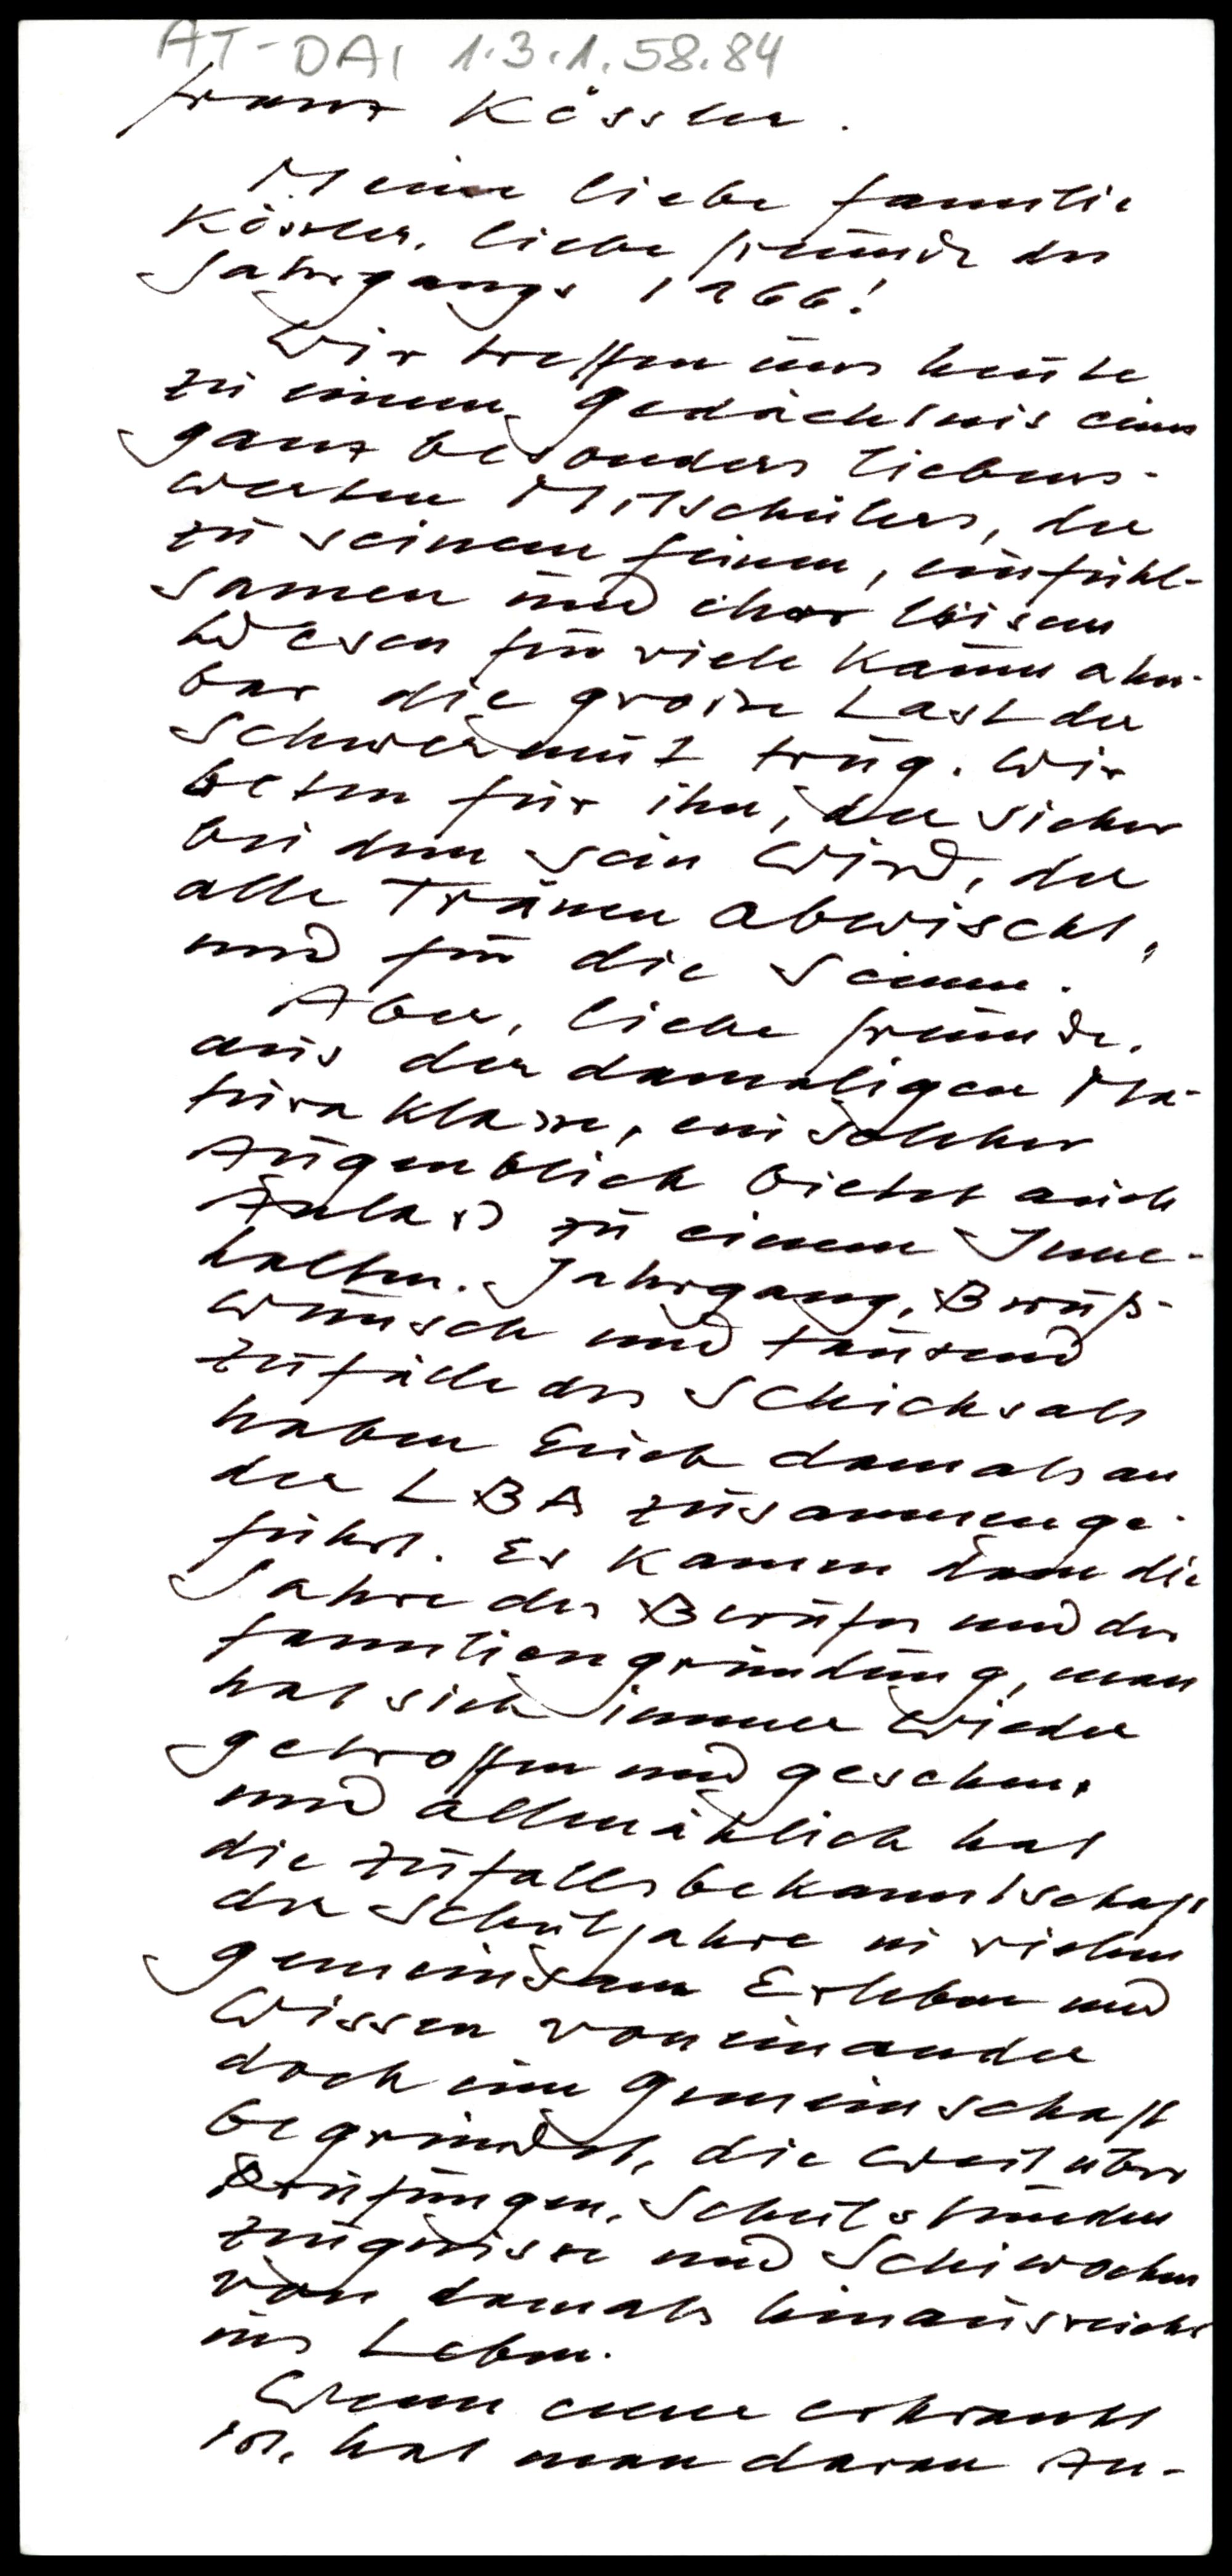 AT-DAI 1.3.1.58.84
Franz Kössler.
Meine liebe Familie
Kössler, liebe Freunde des
Jahrgangs 1966!
Wir treffen uns heute
zu einem Gedächtnis eines
ganz besonders liebens-
werten Mitschülers, der
zu seinem feinen, einfühl-
samen und eher leisen
Wesen für viele kaum ahn-
bar die große Last der
Schwermut trug. Wir
beten für ihn, der sicher
bei dem sein wird, der
alle Tränen abwischt,
und für die Seinen.
Aber, liebe Freunde,
aus der damaligen Ma-
turaklasse, ein solcher
Augenblick bietet auch
Anlass zu einem Inne-
halten. Jahrgang, Berufs-
wunsch und tausend
Zufälle des Schicksals
haben Euch damals an
der LBA zusammenge-
führt. Es kamen dann die
Jahre des Berufes und der
Familiengründung, man
hat sich immer wieder
getroffen und gesehen,
und allmählich hat
die Zufallsbekanntschaft
der Schuljahre in vielem
gemeinsam Erleben und
Wissen voneinander
doch eine Gemeinschaft
begründet, die weit über
Prüfungen, Schulstunden
Zeugnisse und Schiwochen
von damals hinausreicht
ins Leben.
Wenn einer erkrankt
ist, hat man daran An-